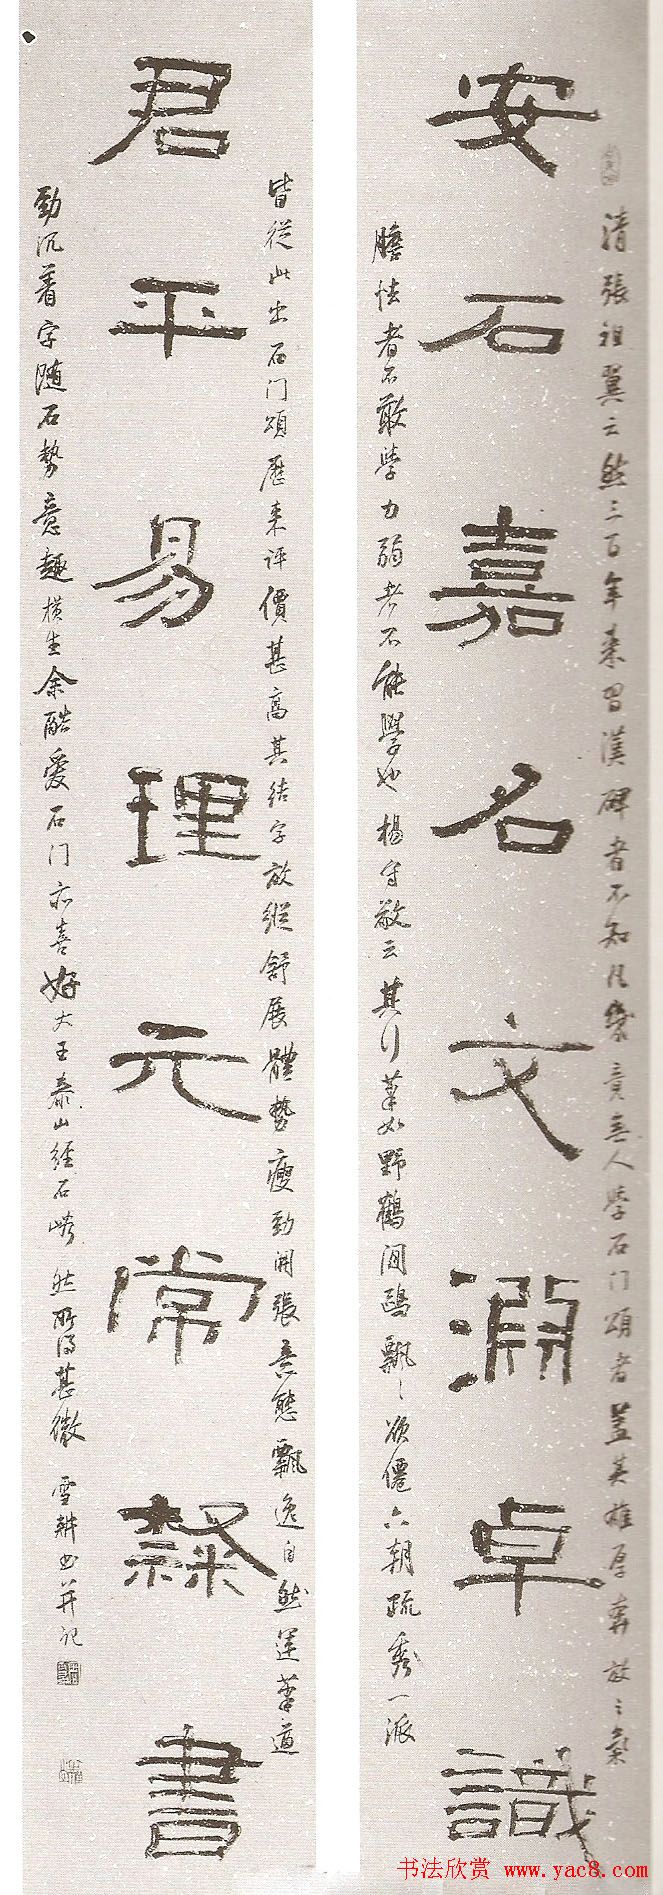 安石嘉名文淵卓識
清張祖翼云然三百年来習漢碑者不知凡幾竟無人學石门頌者蓋其雄厚奔放之氣
膽怯者不敢學力弱者不能學也楊守敬云其行筆如野鶴閒鷗飄飄欲僊六朝疏秀一派
君平易理元常隸書
皆從此出石门頌歷来评價甚高其结字放縱舒展體勢瘦勁開張意態飄逸自然運筆道
勁沉着字随石勢意趣横生余酷爱石门亦喜好大王泰山經石峪然所得甚微 雪耕书并记
书法欣赏 www.yac8.com